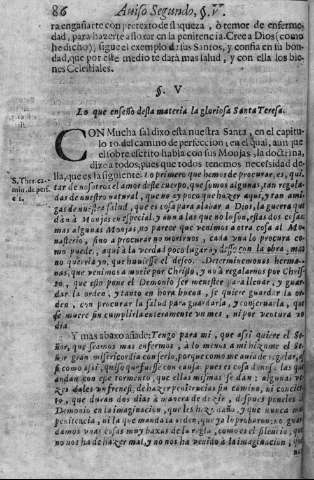 86 Aviso Segundo, §. V.
ra engañarte con pretexto de flaqueza, ò temor de enferme-
dad, para hazerte afloxar en la penitencia. Cree a Dios (como
he dicho) sigue el exemplo de sus Santos, y confia en su bon-
dad, que por este medio te darà mas salud, y con ella los bie-
nes Celestiales.
§. V
Lo que enseñó desta materia la gloriosa Santa Teresa.
CON Mucha sal dixo esta nuestra Santa, en el capitu-
lo 10. del camino de perfeccion; en el qual, aunque
el sobre escrito habla con sus Monjas, la doctrina,
dize a todos, pues que todos tenemos necessidad de-
lla, que es la siguiente. Lo primero que hemos de procurar, es, qui-
S. Ther. ca-
min. de perf.
tar de nosotros el amor deste cuerpo, que somos algunas, tan regala-
das de nuestro natural, que no ay poco que hazer aqui, y tan ami-
gas de nuestra salud, que es cosa para alabar a Dios, la guerra que
dàn à Monjas en especial, y aun a las que no lo son, estas dos cosas;
mas algunas Monjas, no parece que venimos a otra cosa al Mo-
nasterio, sino a procurar no morirnos, cada una lo procura co-
mo puede, aqui a la verdad poco lugar ay desso con la obra, mas
no querria yo, que huuiesse el deseo. Determinemonos herma-
nas, que venimos a morir por Christo, y no à regalarnos por Chris-
to, que esto pone el Demonio ser menester para lleuar, y guar-
dar la orden, y tanto en hora buena, se quiere guardar la or-
den, con procurar la salud para guardarla, y conseruarla, que
se muere sin cumplirla enteramente vn mes, ni por ventura vn
dia.
Y mas abaxo añade: Tengo para mi, que assi quiere el Se-
ñor, que seamos mas enfermos, à lo menos a mi hizome el Se-
ñor gran misericordia en serlo, porque como me auia de regalar, as-
si como assi, quiso que fuesse con causa. pues es cosa donosa, las que
andan con este tormento, que ellas mismas se dàn; algunas ve-
zes dales vn frenesì, de hazer penitencias sin camino, ni concier-
to, que duran dos dias à manera de dezir, despues poneles el
Demonio en la imaginacion, que les hizo daño, y que nunca mas
penitencia, ni la que manda la orden, que ya lo probaron: no guar-
damos vnas cosas muy baxas de la regla, como es el silencio, que
no nos ha de hazer mal, y no nos ha venido à la imaginacion, que